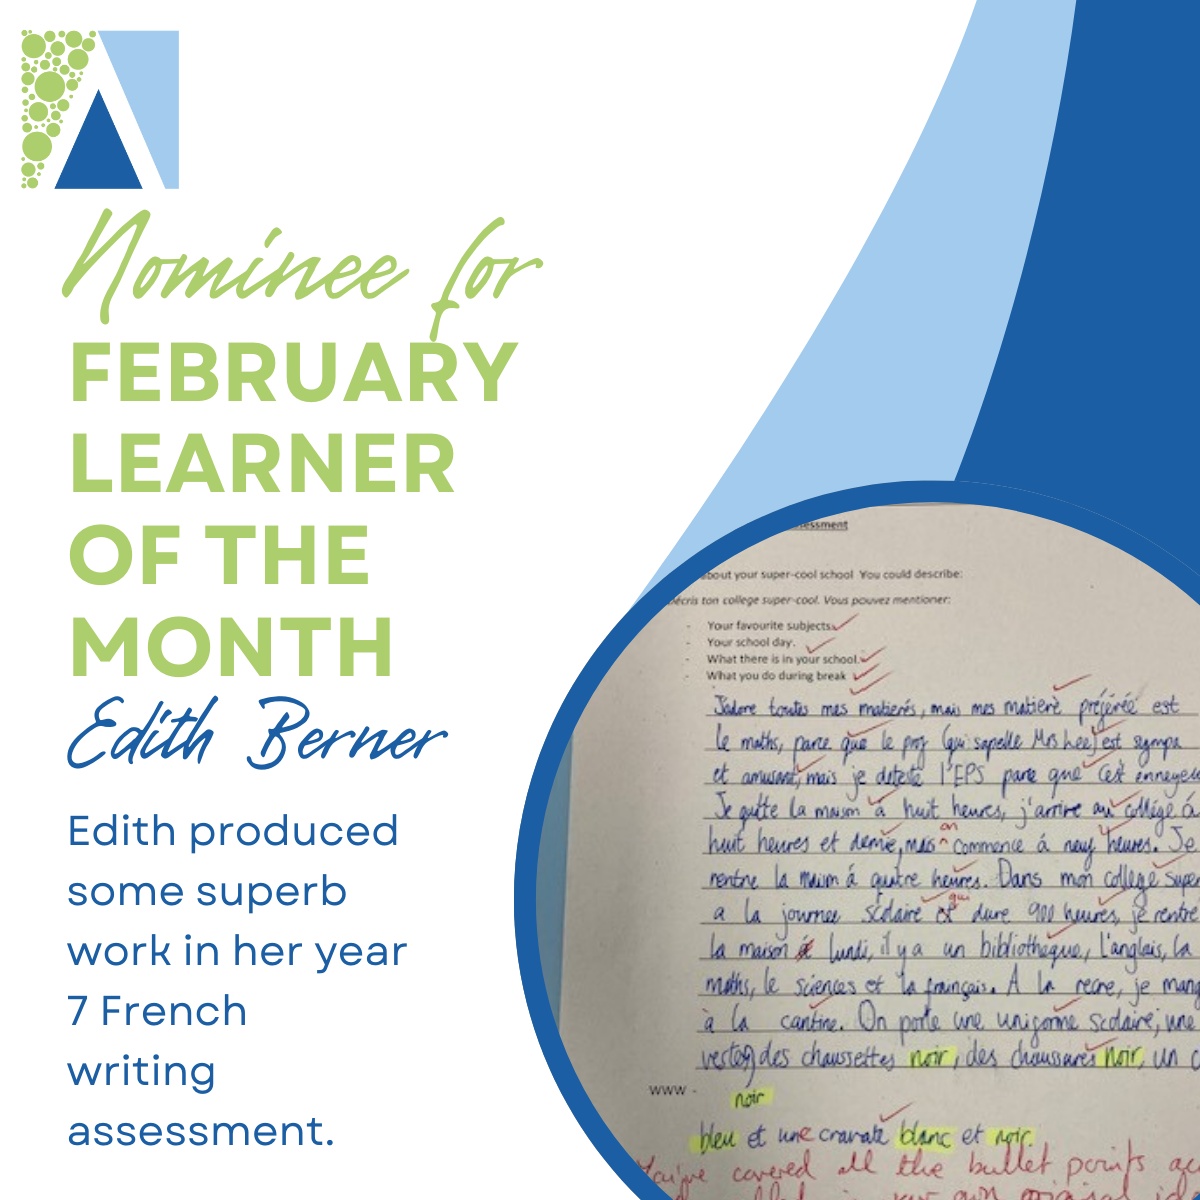 Nominee for
FEBRUARY
LEARNER
OF THE
MONTH
Edith Berner
Edith produced
some superb
work in her year
7 French
writing
assessment.
about your super-cool school You could describe:
ton college super-cool. Vous pouvez mentioner:
- Your favourite subjects.
- Your school day.
- What there is in your school.
- What you do during break
J'adore toutes mes matierés, mais mes matierè préférée est
le maths, parce que le prof (qui s'apelle Mrs Lee) est sympa
et amusant, mais je deteste l'EPS parce que c'est
Je quitte la maison à huit heures, j'arrive au collége á
huit heures et demie, mais on commence á neuf heures. Je
rentre la maison á quatre heures. Dans mon collége super
a la journee scolaire qui dure 900 heures, je rentre
la maison lundi, il y a un bibliotheque, l'anglais, la
maths, le sciences et la français. À la recre, je
à la cantine. On porte une uniforme scolaire, une
des chaussettes noir, des chaussures noir, un
WWW -
noir
bleu et une cravate blanc et noir.
You've covered all the bullet points
in your own original